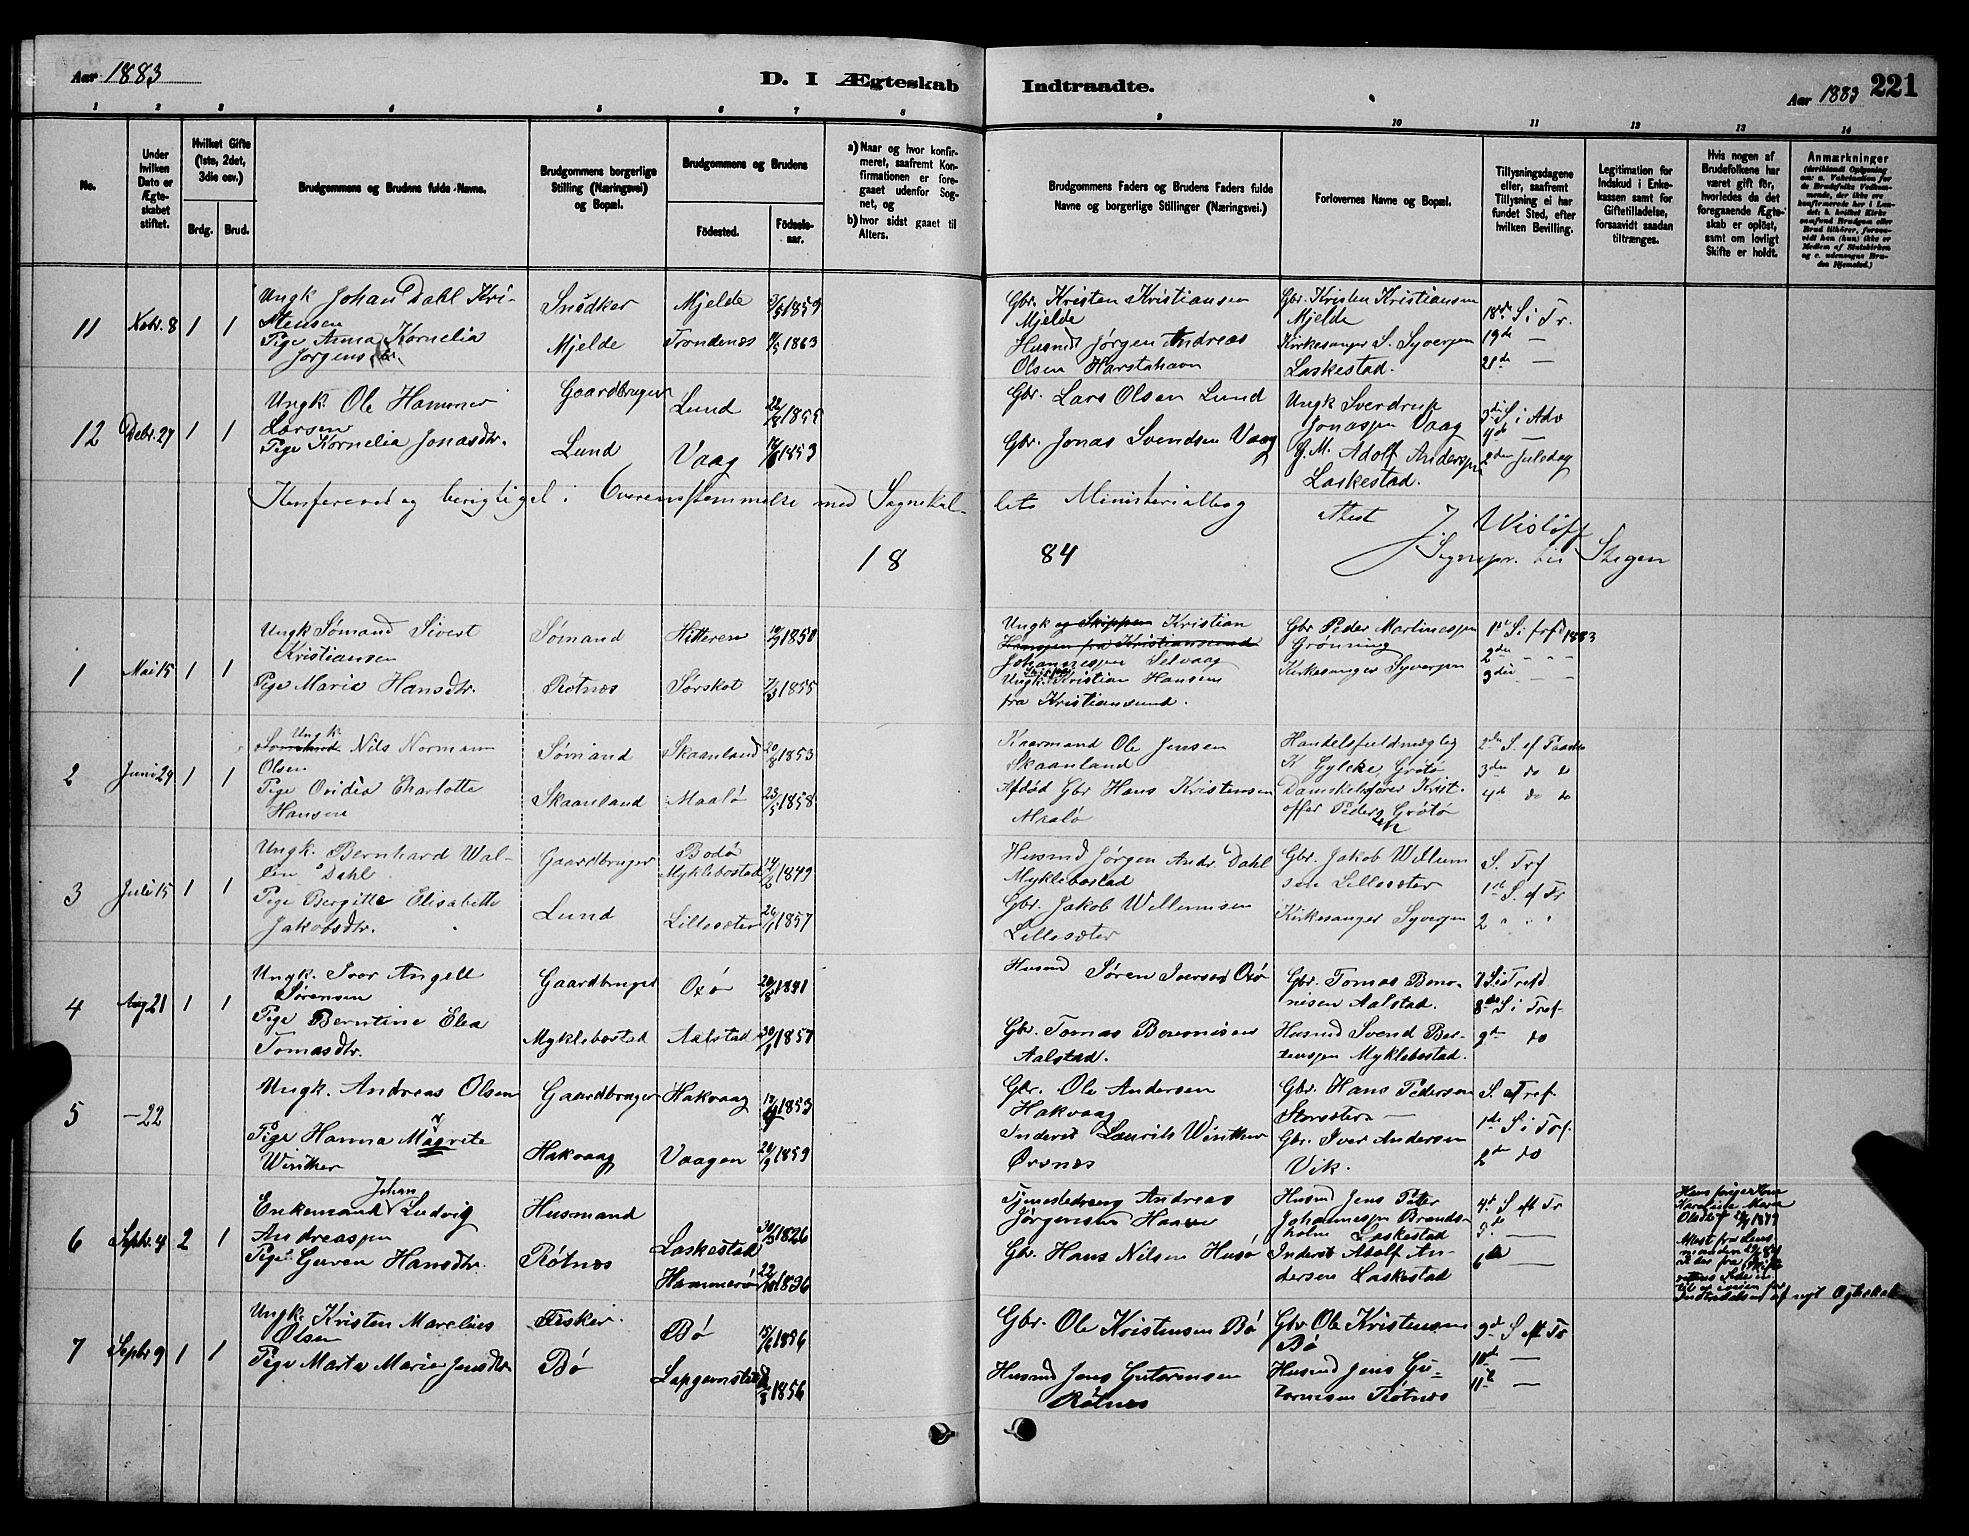 Aar 1883
D. I Ægteskab Indtraadte.
Aar 1883 221
1 2 3 4 5 6 7 8 9 10 11 12 13 14
No.
Under hvilken Dato er Ægteskabet stiftet.
Hvilket Gifte (1ste, 2det, 3die osv.)
Brdg. Brud.
Brudgommens og Brudens fulde Navne.
Brudgommens borgerlige Stilling (Næringsvei) og Bopæl.
Brudgommens og Brudens
Fødested. Fødselsaar.
a) Naar og hvor konfirmeret, saafremt Konfirmationen er foregaaet udenfor Sognet, og
b) hvor sidst gaaet til Alters.
Brudgommens Faders og Brudens Faders fulde Navne og borgerlige Stillinger (Næringsvei.)
Forlovernes Navne og Bopæl.
Tillysningsdagene eller, saafremt Tillysning ei har fundet Sted, efter hvilken Bevilling.
Legitimation for Indskud i Enkekassen samt for Giftetilladelse, forsaavidt saadan tiltrænges.
Hvis nogen af Brudefolkene har været gift før, hvorledes da det foregaaende Ægteskab er opløst, samt om lovligt Skifte er holdt.
Anmærkninger
11 8 1 1
Ungk Johan Dahl Kristensen
Pige Anna Kornelia Jørgensdtr.
Snedker
Mjelde
Mjelde 1859
Trondenæs 1863
Gbr. Kristen Kristiansen
Mjelde
Husmd Jørgen Andreas
Olsen Harstahavn
Gbr. Kristen Kristiansen
Mjelde
Kirkesanger S. Syversen
Laskestad.
18de S i Tr.
19de —
21de —
12 Debr. 27 1 1
Ungk. Ole Hammer
Larsen
Pige Kornelia Jonasdtr.
Gaardbruger
Lund
Lund 22/8 1855
Vaag 1853
Gbr. Lars Olsen Lund
Gbr. Jonas Svendsen Vaag
Ungk Sverdrup
Jonassen Vaag
G.M. Adolf Anderssen
Laskestad.
3di S i Adv
4de —
2den Juledag
Konfereret og berigtiget i Overensstemmelse med Sognekaldets Ministerialbog
Attest J Wisløff
Sognepr. til Stegen
18 84
1 Mai 15 1 1
Ungk Sømand Sivert
Kristiansen
Pige Maria Hansdtr.
Sømand
Røtnes
Hitteren 1850
Sørskot 1855
Ungk og Skipper Kristian
Hanssen fra Kristianssund
Johannessen Selvaag
Ungk. Kristian Hansen
fra Kristianssund.
Gbr Peder Martinessen
Grønning
Kirkesanger Syversen
1st S. 1883
2den " "
3die " "
2 Juni 29 1 1
Ungk.
Sømand Nils Normann
Olsen
Pige Ovidia Charlotte
Hansen
Sømand
Skaanland
Skaanland 20/8 1853
Maalø 23/5 1858
Kaarmand Ole Jensen
Skaanland
Afdød Gbr Hans Kristensen
Maalø
Handelsfuldmægtig
K Gylcke, Grøtø
Dampskibsfører Kristoffer Pedersen Grøtø
2den S. ef Paaske
3die do do
4de do do
3 Juli 15 1 1
Ungk. Bernhard Wallen Dahl
Pige Bergitte Elisabeth
Jakobsdtr.
Gaardbruger
Lund
Bodø
Myklebostad 14/2 1849
Lillesæter 1857
Husmd Jørgen Andr. Dahl
Myklebostad
Gbr. Jakob Willumsen
Lillesæter
Gbr. Jakob Willumsen Lillesæter
Kirkesanger Syversen
S. Trf
1st S. ef Tr
2 " "
4 Aug 21 1 1
Ungk. Ivar Angell
Sørensen
Pige Berntine Elea
Tomasdtr.
Gaardbruger
Myklebostad
Oxø 20/8 1841
Aalstad 1857
Husmd Søren Iversen Oxø
Gbr. Tomas Benonisen
Aalstad.
Gbr. Tomas Benonisen Aalstad.
Husmd Svend Bertenssen Myklebostad.
7 S. i Tref
8de S i Tref
9de do
5 —22
Ungk. Andreas Olsen
Pige Hanna Magrete
Winther
Gaardbruger
Hakvaag
Hakvaag 1853
Vaagen 20/9 1859
Gbr. Ole Andersen
Hakvaag
Inderst Laurits Winther
Ørsnes
Gbr. Hans Pedersen
Storsæter —
Gbr. Iver Andersen
Vik.
S. af Tref
1de S i Tref
2de do
6 Septbr. 4 2 1
Enkemand Johan Ludvig
Andreassen
Pige Guren Hansdtr.
Husmand
Røtnes
Laskestad 1826
Hammerø 22/10 1836
Tjenestedreng Andreas
Jørgensen
Gbr. Hans Nilsen Husø
Husmd Jens Peter
Johannessen Brandsholm Laskestad
Inderst Adolf Andersen Laskestad
4de S eft Tr
5de —
6te —
Hans forrige Kone
Karoline Marie
Olsdtr † 1879
Attest fra Lensmanden
Indtrædelse af nyt Ægteskab
7 Septbr 9 1 1
Ungk. Kristen Marelius
Olsen
Pige Marta Marie Jensdtr.
Fisker.
Bø
Bø 15/6 1856
1856
Gbr. Ole Kristensen Bø
Husmd Jens Gutormsen
Røtnes
Gbr Ole Kristensen
Bø
Husmd Jens Gutormsen Røtnes
9de S eft Tr
10de —
11te —